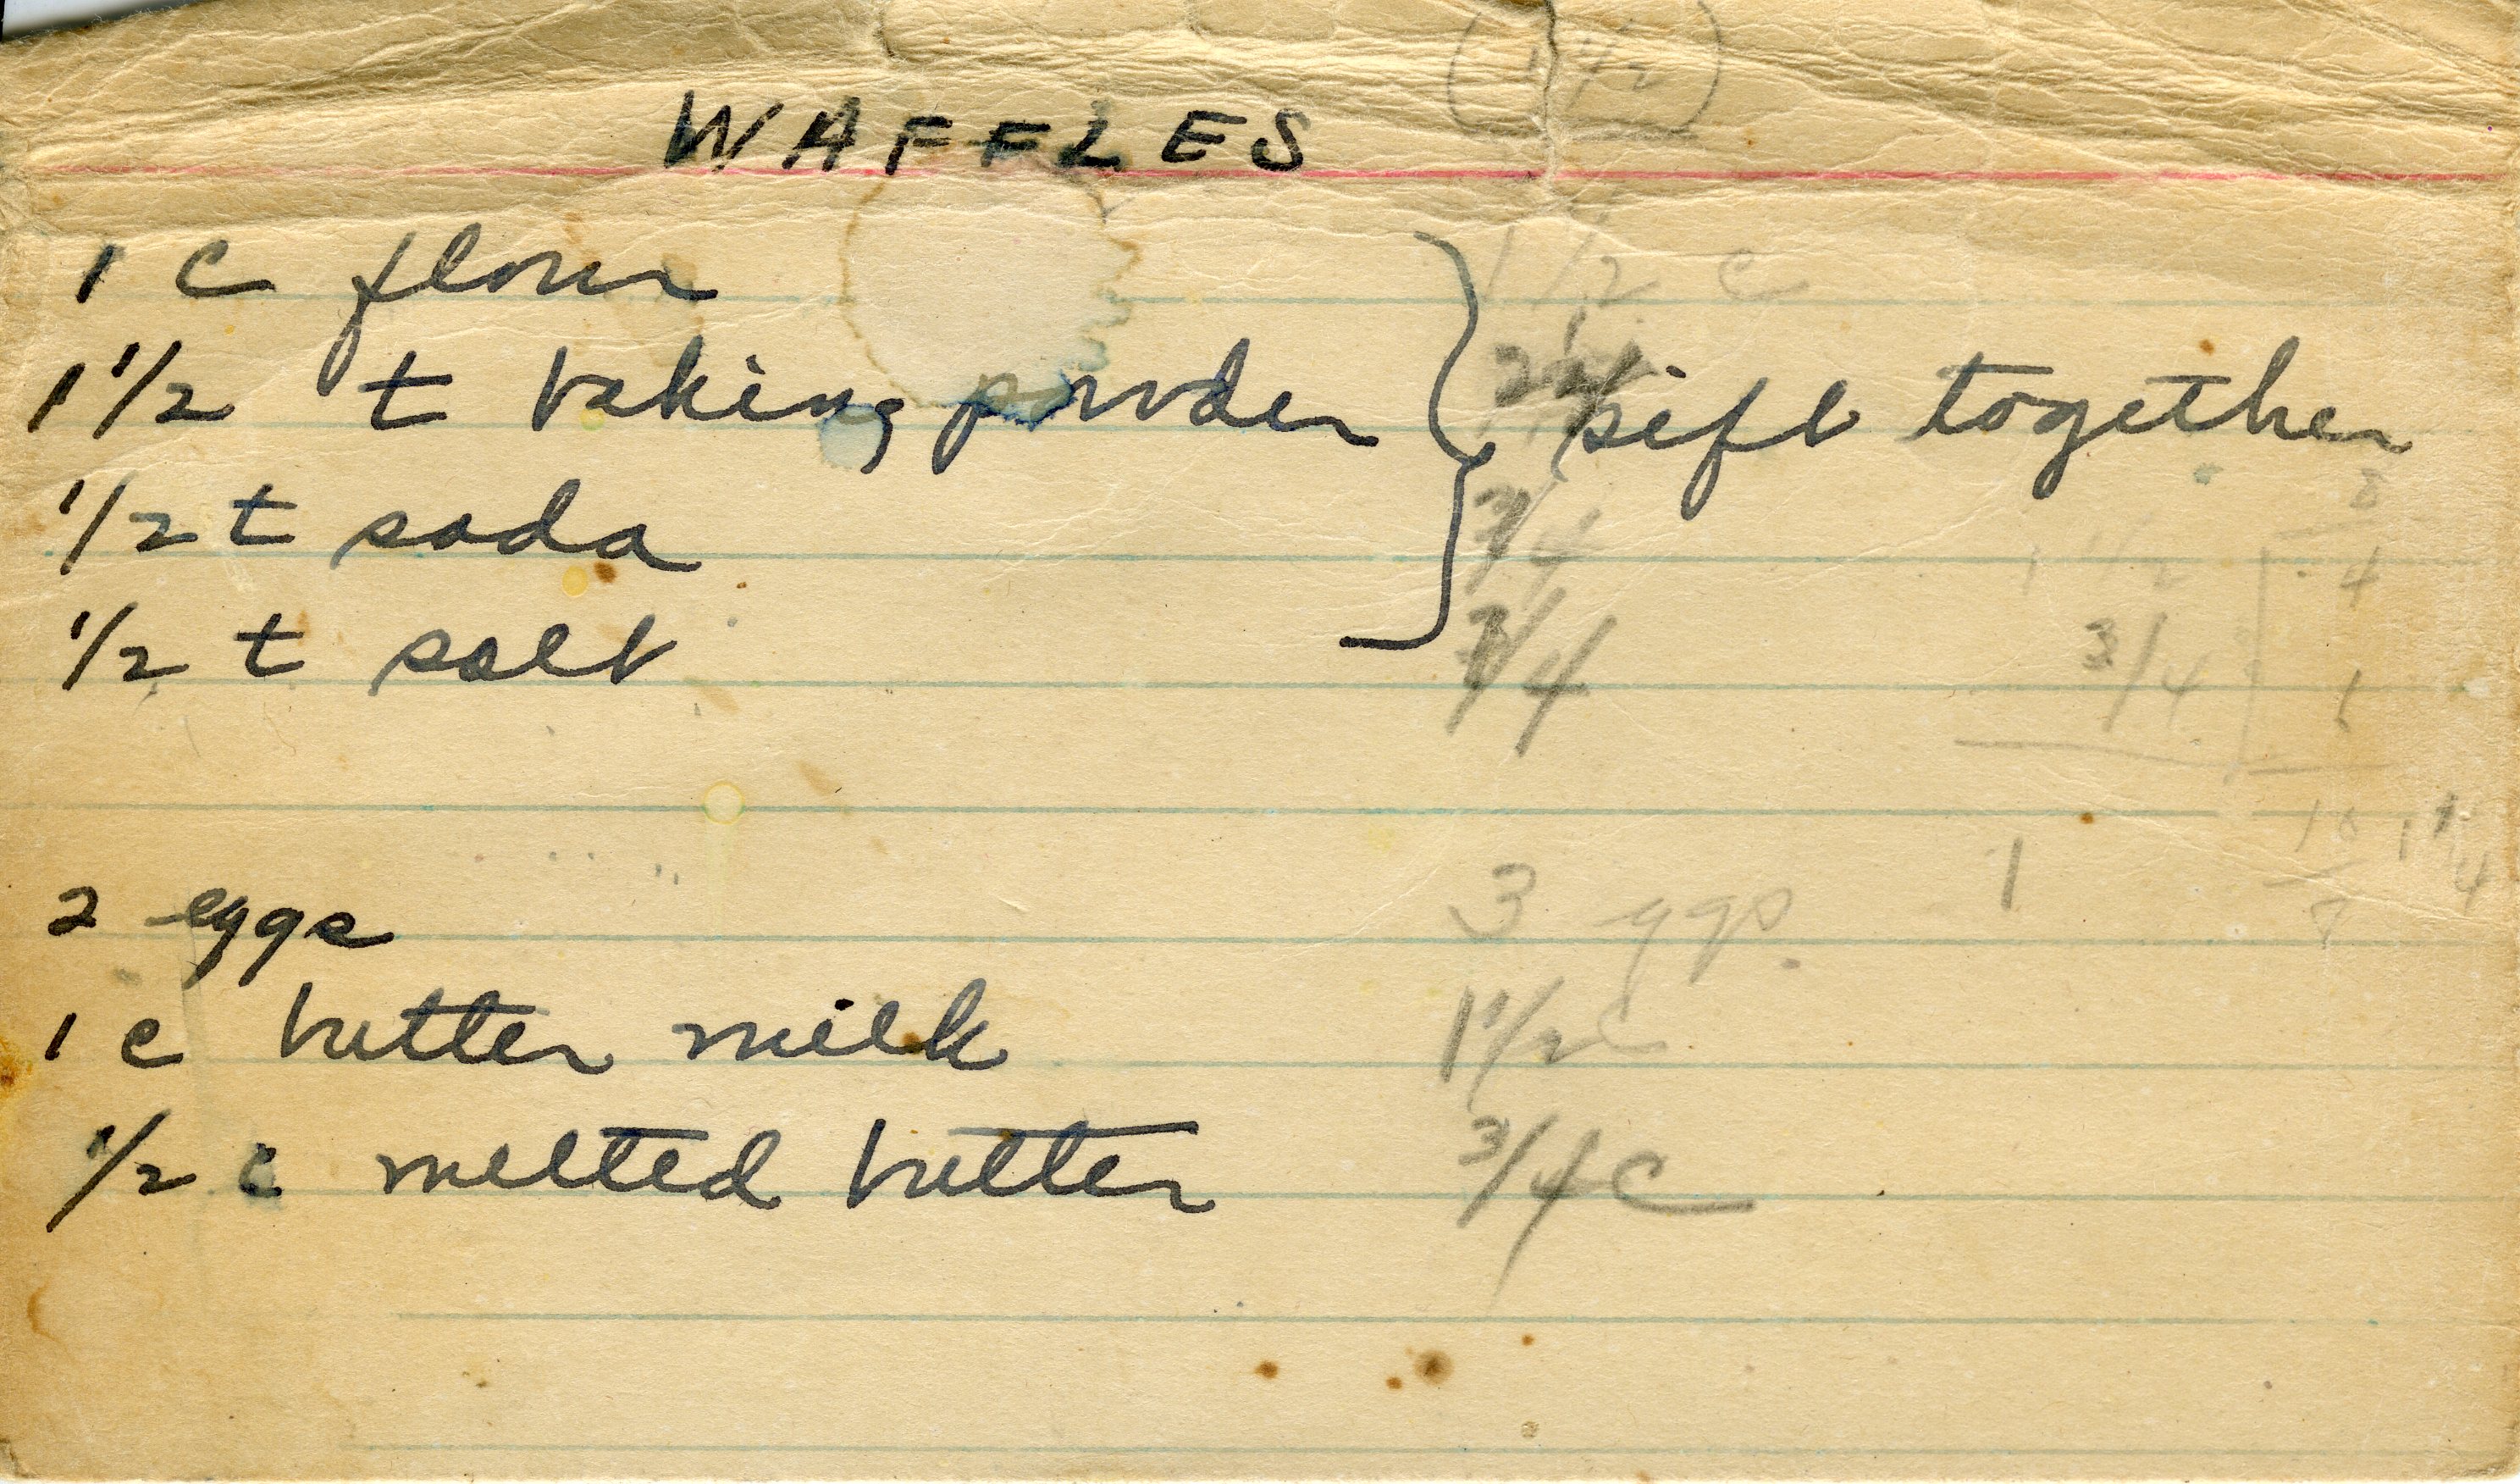 1 1/2
WAFFLES
1 c flour 1 1/2 c
1 1/2 t baking powder sift together
1/2 t soda 3/4
8
1/2 t salt 3/4
1 1/2 4
3/4 1
10 1 1/4
8
2 eggs 3 ggs. 1
1 c butter milk 1 1/2 c
1/2 c melted butter 3/4 c